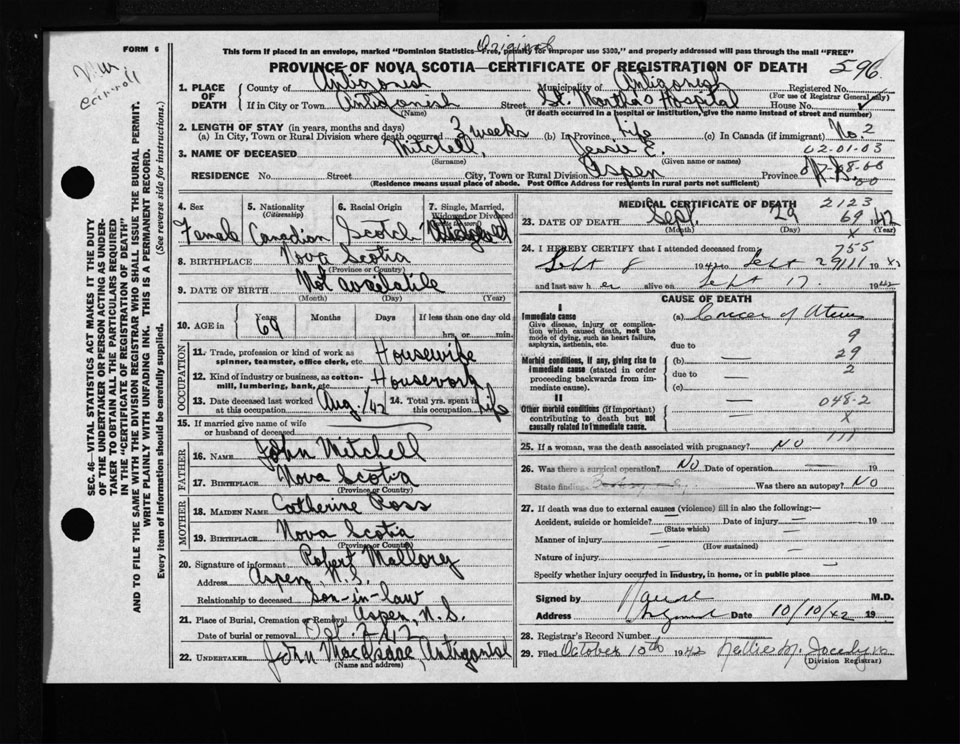 FORM 6
Original
This form if placed in an envelope, marked "Dominion Statistics—Free, penalty for improper use $300," and properly addressed will pass through the mail "FREE"
PROVINCE OF NOVA SCOTIA—CERTIFICATE OF REGISTRATION OF DEATH 596
1. PLACE OF DEATH County of Antigonish Municipality of Antigonish Registered No.
(For use of Registrar General only)
If in City or Town Antigonish Street St. Martha's Hospital House No.
(Name) (If death occurred in a hospital or institution, give the name instead of street and number)
2. LENGTH OF STAY (in years, months and days)
(a) In City, Town or Rural Division where death occurred 3 weeks (b) in Province Life (c) In Canada (if immigrant) No. 2
02-01-03
3. NAME OF DECEASED Mitchell, Jessie E.
(Surname) (Given name or names)
RESIDENCE No. Street City, Town or Rural Division Aspen Province N.S.
(Residence means usual place of abode. Post Office Address for residents in rural parts not sufficient)
4. Sex Female
5. Nationality (Citizenship) Canadian
6. Racial Origin Scotch
7. Single, Married, Widowed or Divorced
8. BIRTHPLACE Nova Scotia
(Province or Country)
9. DATE OF BIRTH Not available
(Month) (Day) (Year)
10. AGE in Years 69 Months Days If less than one day old
hrs. or min.
OCCUPATION
11. Trade, profession or kind of work as spinner, teamster, office clerk, etc. Housewife
12. Kind of industry or business, as cotton-mill, lumbering, bank, etc. Housework
13. Date deceased last worked at this occupation Aug./42 14. Total yrs. spent in this occupation Life
15. If married give name of wife or husband of deceased
FATHER
16. NAME John Mitchell
17. BIRTHPLACE Nova Scotia
(Province or Country)
MOTHER
18. MAIDEN NAME Catherine Ross
19. BIRTHPLACE Nova Scotia
(Province or Country)
20. Signature of informant Robert Mallory
Address Aspen, N.S.
Relationship to deceased Son-in-law
21. Place of Burial, Cremation or Removal Aspen, N.S.
Date of burial or removal Oct. 2/42
22. UNDERTAKER John MacIsaac, Antigonish
(Name and address)
MEDICAL CERTIFICATE OF DEATH 2123
69
23. DATE OF DEATH Sept. 29 1942
(Month) (Day) (Year)
X
24. I HEREBY CERTIFY that I attended deceased from 755
Sept 8 1942 to Sept 29 111 1942
and last saw her alive on Sept 17 1942
CAUSE OF DEATH
I
Immediate cause (a) Cancer of Uterus
Give disease, injury or complication which caused death, not the mode of dying, such as heart failure, asphyxia, asthenia, etc.
due to 9
29
Morbid conditions, if any, giving rise to immediate cause (stated in order proceeding backwards from immediate cause). (b) — 2
due to —
(c) —
II
Other morbid conditions (if important) contributing to death but not causally related to immediate cause. — 048-2
— X
111
25. If a woman, was the death associated with pregnancy? NO
26. Was there a surgical operation? NO Date of operation — 19
State findings Was there an autopsy? NO
27. If death was due to external causes (violence) fill in also the following:—
Accident, suicide or homicide? — Date of injury — 19
(State which)
Manner of injury —
(How sustained)
Nature of injury —
Specify whether injury occurred in industry, in home, or in public place —
Signed by M.D.
Address Date 10/10/42 19
28. Registrar's Record Number
29. Filed October 10th 1942 Nellie M.
(Division Registrar)
SEC. 46—VITAL STATISTICS ACT MAKES IT THE DUTY
OF THE UNDERTAKER OR PERSON ACTING AS UNDER-
TAKER TO OBTAIN ALL THE PARTICULARS REQUIRED
IN THE "CERTIFICATE OF REGISTRATION OF DEATH"
AND TO FILE THE SAME WITH THE DIVISION REGISTRAR WHO SHALL ISSUE THE BURIAL PERMIT.
WRITE PLAINLY WITH UNFADING INK. THIS IS A PERMANENT RECORD.
Every item of information should be carefully supplied. (See reverse side for instructions.)